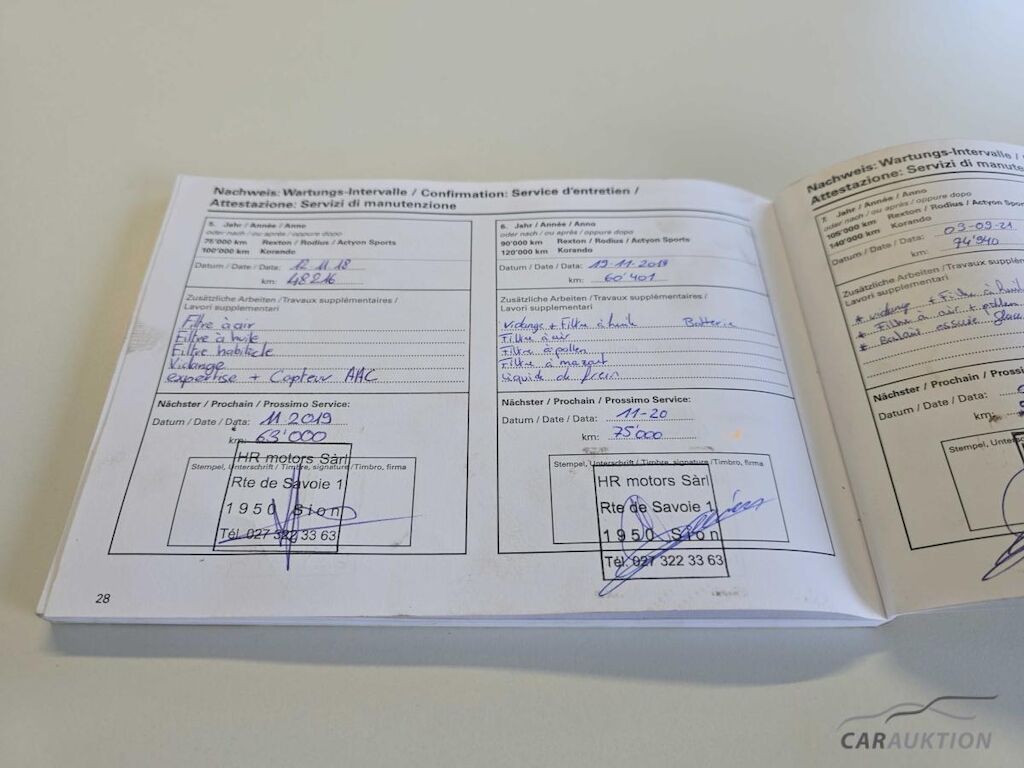 Nachweis: Wartungs-Intervalle / Confirmation: Service d'entretien /
Attestazione: Servizi di manutenzione
5. Jahr / Année / Anno
oder nach / ou après / oppure dopo
75'000 km Rexton / Rodius / Actyon Sports
100'000 km Korando
Datum / Date / Data: 12.11.18
km: 48216
Zusätzliche Arbeiten / Travaux supplémentaires /
Lavori supplementari
Filtre à air
Filtre à huile
Filtre habitacle
Vidange
expertise + Capteur AAC
Nächster / Prochain / Prossimo Service:
Datum / Date / Data: 11 2019
km: 63'000
Stempel, Unterschrift / Timbre, signature / Timbro, firma
HR motors Sàrl
Rte de Savoie 1
1950 Sion
Tél. 027 322 33 63
28
6. Jahr / Année / Anno
oder nach / ou après / oppure dopo
90'000 km Rexton / Rodius / Actyon Sports
120'000 km Korando
Datum / Date / Data: 19-11-2019
km: 60'401
Zusätzliche Arbeiten / Travaux supplémentaires /
Lavori supplementari
Vidange + Filtre à huile Batterie
Filtre à air
Filtre à pollen
Filtre à mazout
Liquide de frein
Nächster / Prochain / Prossimo Service:
Datum / Date / Data: 11-20
km: 75'000
Stempel, Unterschrift / Timbre, signature / Timbro, firma
HR motors Sàrl
Rte de Savoie 1
1950 Sion
Tél. 027 322 33 63
Nachweis: Wartungs-Intervalle /
Attestazione: Servizi di manute
7. Jahr / Année / Anno
oder nach / ou après / oppure dopo
105'000 km Rexton / Rodius / Actyon Spo
140'000 km Korando
Datum / Date / Data: 03-09-21
km: 74'940
Zusätzliche Arbeiten / Travaux supplé
Lavori supplementari
* vidange + Filtre à huile
* Filtre à air + pollen
* Balant essuie glace
Nächster / Prochain / Prossimo
Datum / Date / Data:
km:
Stempel, Untersch
CARAUKTION